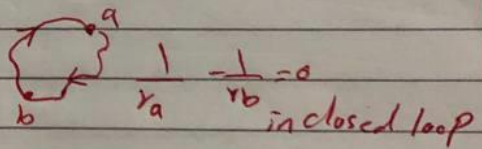 a
1/ra - 1/rb = 0
b
in closed loop